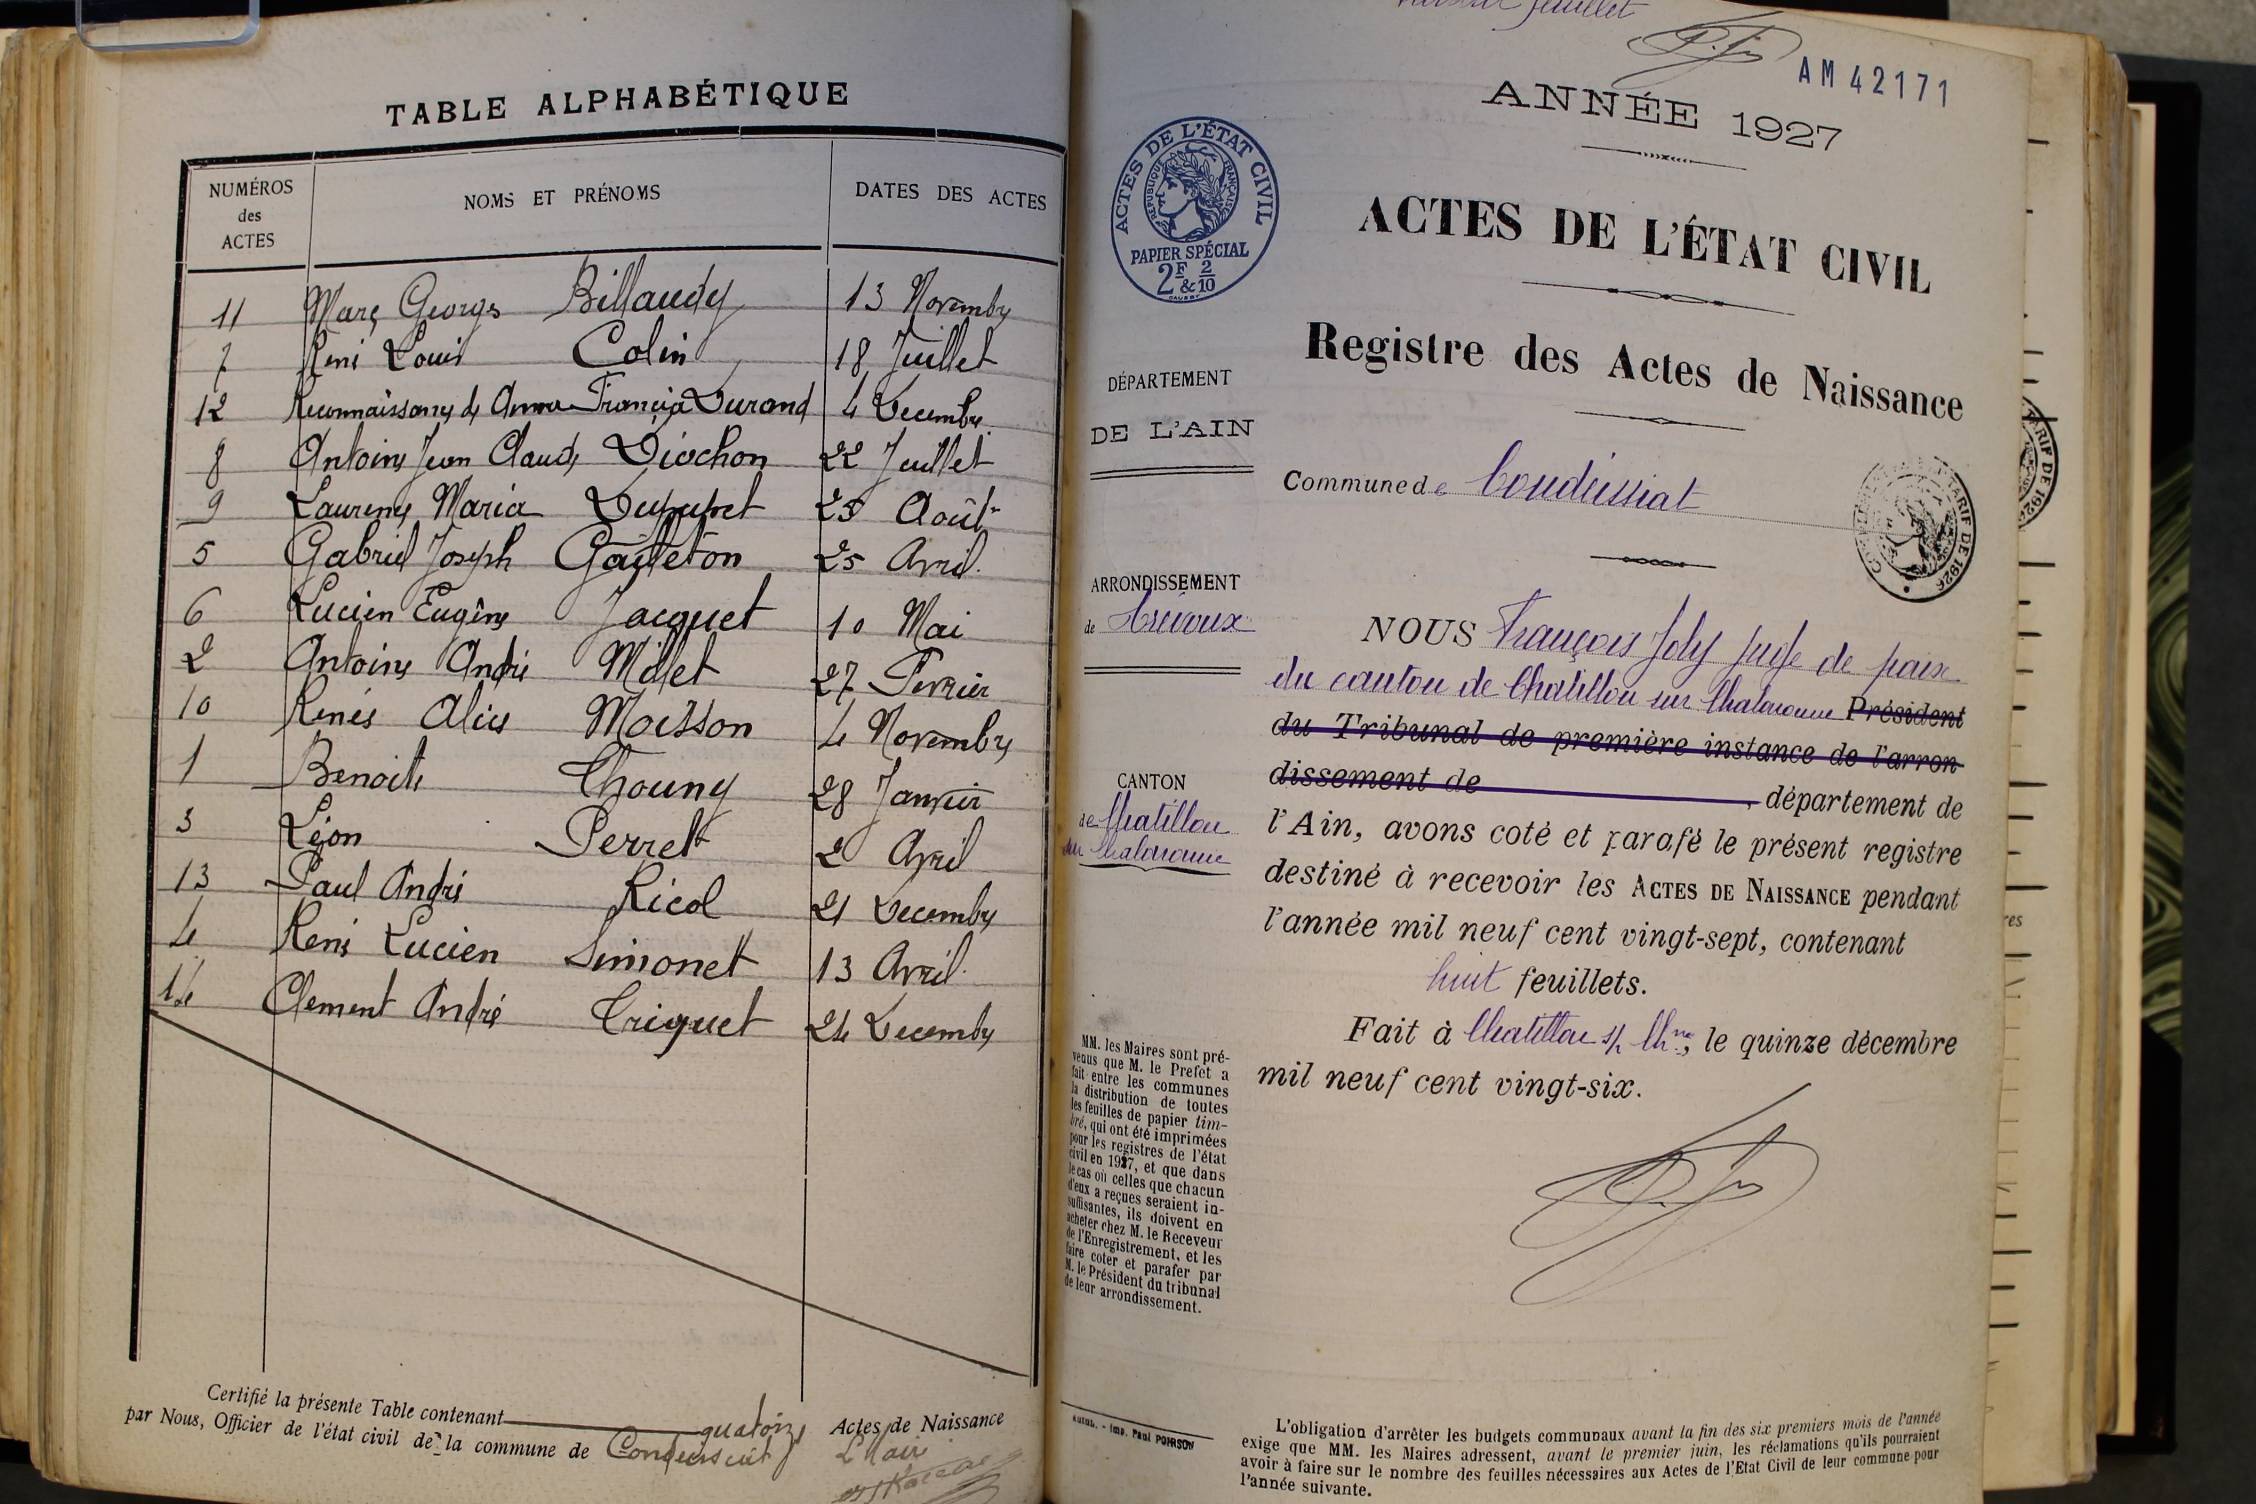 TABLE ALPHABÉTIQUE
NUMÉROS des ACTES
NOMS ET PRÉNOMS
DATES DES ACTES
11 Marc Georges Billaudy 13 Novembre
7 René Louis Colin 18 Juillet
12 Reconnaissance de Durand 4 Decembre
8 Antoine Jean Claude Diochon 22 Juillet
9 Maria Dupupet 25 Août
5 Gabriel Joseph Gailleton 25 Avril
6 Lucien Eugène Jacquet 10 Mai
2 Antoine André Millet 27 Fevrier
10 Renée Alice Moisson 4 Novembre
1 Benoite 28 Janvier
3 Léon Perret 2 Avril
13 Paul André Ricol 21 Decembre
4 René Lucien Simonet 13 Avril
14 Clement André Triquet 24 Decembre
Certifié la présente Table contenant quatorze Actes de Naissance
par Nous, Officier de l'état civil de la commune de Condeissiat
L Maire
feuillet
AM 42171
ANNÉE 1927
ACTES DE L'ÉTAT CIVIL
RÉPUBLIQUE FRANÇAISE
PAPIER SPÉCIAL
2F & 2/10
ACTES DE L'ÉTAT CIVIL
Registre des Actes de Naissance
DÉPARTEMENT
DE L'AIN
Commune de Condeissiat
TARIF DE 1926
ARRONDISSEMENT
de Trévoux
CANTON
de Chatillon
sur Chalaronne
NOUS François Joly Juge de paix
du canton de Chatillon sur Chalaronne Président
du Tribunal de première instance de l'arron
dissement de , département de
l'Ain, avons coté et parafé le présent registre
destiné à recevoir les ACTES DE NAISSANCE pendant
l'année mil neuf cent vingt-sept, contenant
huit feuillets.
Fait à Chatillon s/ Chne, le quinze décembre
mil neuf cent vingt-six.
MM. les Maires sont pré-
venus que M. le Prefet a
fait entre les communes
la distribution de toutes
les feuilles de papier tim-
bré, qui ont été imprimées
pour les registres de l'état
civil en 1927, et que dans
le cas où celles que chacun
d'eux a reçues seraient in-
suffisantes, ils doivent en
acheter chez M. le Receveur
de l'Enregistrement, et les
faire coter et parafer par
M. le Président du tribunal
de leur arrondissement.
Imp. Paul POIRSON
L'obligation d'arrêter les budgets communaux avant la fin des six premiers mois de l'année
exige que MM. les Maires adressent, avant le premier juin, les réclamations qu'ils pourraient
avoir à faire sur le nombre des feuilles nécessaires aux Actes de l'Etat Civil de leur commune pour
l'année suivante.
TARIF DE 1926
res